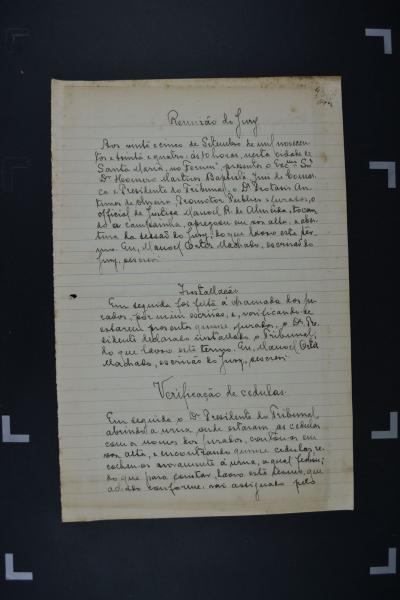 Reunião do Jury
Aos vinte e cinco de Setembro de mil novecen-
tos e trinta e quatro, ás 10 horas, nesta cidade de
Santa Maria, no Forum, presentes o Exmo. Sr.
Dr. Homero Martins Baptista, Juiz de Comar-
ca e Presidente do Tribunal, o Dr.
Promotor Publico e jurados, o
official de Justiça Manoel R. de Almeida, tocan-
do a campainha, apregoou em voz alta a aber-
tura da sessão do Jury, do que lavro este ter-
mo. Eu, Manoel Machado, escrivão do
Jury, escrevi.
Installação
Em seguida foi feita a chamada dos ju-
rados, por mim escrivão, e, verificando-se
estarem presentes quinze jurados, o Dr. Pre-
sidente declarou installado o Tribunal,
do que lavro este termo. Eu, Manoel
Machado, escrivão do Jury, escrevi.
Verificação de cedulas.
Em seguida o Dr. Presidente do Tribunal,
abrindo a urna onde estavam as cedulas
com os nomes dos jurados, contou-as em
voz alta, e encontrando quinze cedulas re-
colheu-as novamente á urna, a qual fechou,
do que para constar, lavro este termo, que
conforme, vai assignado pelo